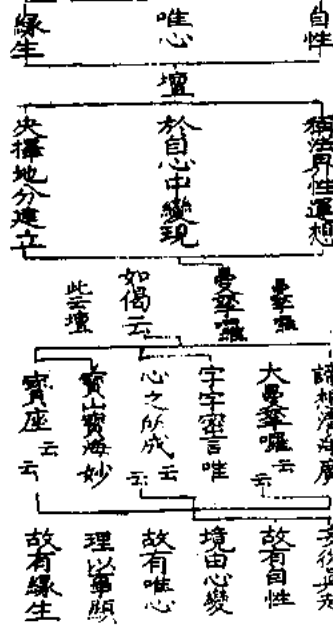 自性
唯心
緣生
壇
稱法界性運想
於自心中變現
決擇地分建立
曼拏囉
曼拏囉
如偈云
此云壇
諦想
大曼拏囉云云
字字密言唯
心之所成云云
寶山寶海妙
寶座云云
故有自性
境由心變
故有唯心
理以事顯
故有緣生